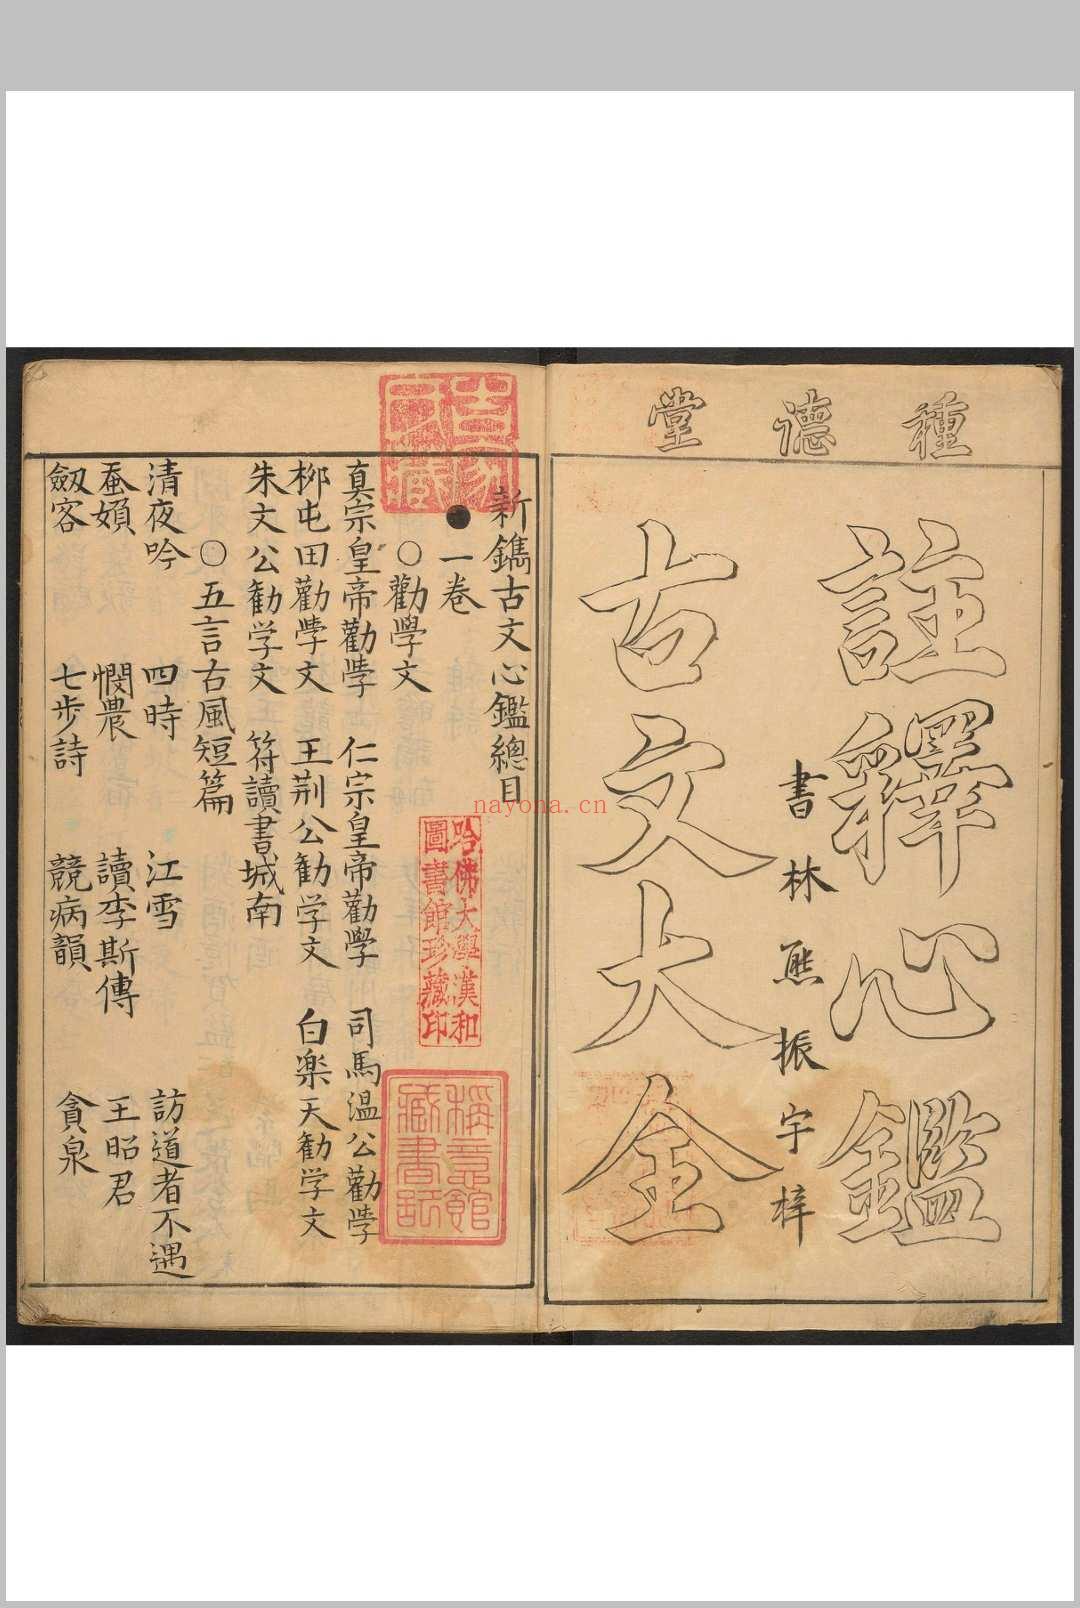 種德堂
註釋心鑑
書林熊振宇梓
古文大全
新鐫古文心鑑總目
●一卷
○勸學文
真宗皇帝勸學 仁宗皇帝勸學 司馬溫公勸学
柳屯田勸学文 王荊公勧学文 白楽天勧学文
朱文公勧学文 符讀書城南
○五言古風短篇
清夜吟 四時 江雪 訪道者不遇
蚕婦 憫農 讀李斯傳 王昭君
劔客 七步詩 競病韻 貪泉
哈佛大學漢和
圖書館珍藏印
稱意館
藏書記
nayona.cn